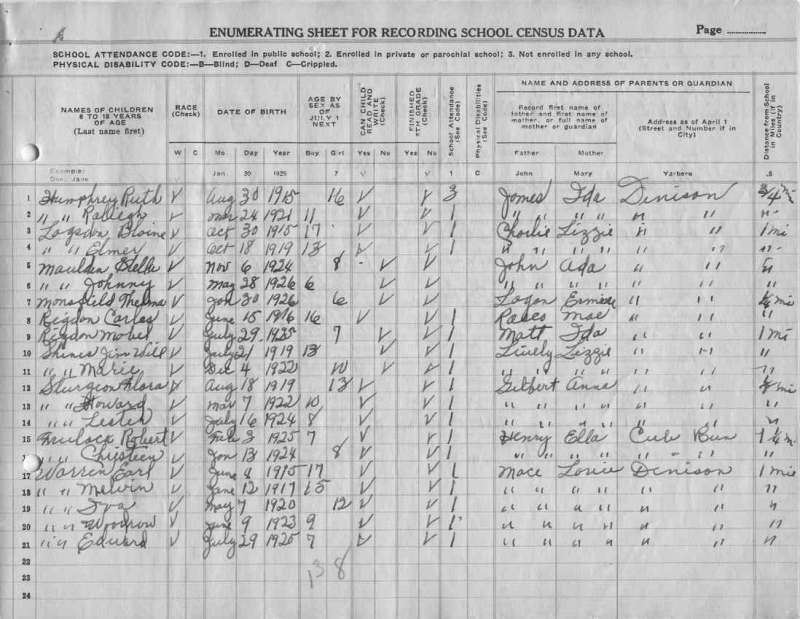 ENUMERATING SHEET FOR RECORDING SCHOOL CENSUS DATA Page
SCHOOL ATTENDANCE CODE:—1. Enrolled in public school; 2. Enrolled in private or parochial school; 3. Not enrolled in any school.
PHYSICAL DISABILITY CODE:—B—Blind; D—Deaf C—Crippled.
NAMES OF CHILDREN 6 TO 18 YEARS OF AGE (Last name first)
RACE (Check)
DATE OF BIRTH
AGE BY SEX AS OF JULY 1 NEXT
CAN CHILD READ AND WRITE (Check)
FINISHED 8TH GRADE (Check)
School Attendance (See Code)
Physical Disabilities (See Code)
NAME AND ADDRESS OF PARENTS OR GUARDIAN
Record first name of father and first name of mother, or full name of mother or guardian
Address as of April 1 (Street and Number if in City)
Distance from School in Miles (if in Country)
W C Mo. Day Year Boy Girl Yes No Yes No 1 C Father Mother
Example: Doe, Jane Jan. 30 1925 7 √ √ John Mary Yarbers .5
1 Humphrey Ruth √ Aug 30 1915 16 √ √ 3 James Ida Denison 3/4
2 " " Raleigh √ Mar 24 1921 11 √ √ 1 " " " " " "
3 Logsdon, Bloine √ Oct 30 1915 17 √ √ 1 Charlie Lizzie " " 1 mi
4 " " Elmer √ Oct 18 1919 13 √ √ 1 " " " " " "
5 Maulden, √ Nov 6 1924 8 √ √ John Ada " "
6 " " Johnny √ May 28 1926 6 √ √ " " " " " "
7 Mansfield Thelma √ Jan 30 1926 6 √ √ Logan " " mi
8 Rigdon Carlos √ June 15 1916 16 √ √ 1 Mae " " "
9 Rigdon Mabel √ July 29 1925 7 √ √ 1 Matt Ida " " 1 mi
10 Jim Will √ July 21 1919 13 √ √ 1 Lively Lizzie " " "
11 " " Marie √ Dec 4 1922 10 √ √ 1 " " " " " " "
12 Sturgeon Flora √ Aug 18 1919 13 √ √ 1 Gilbert Anna " " mi
13 " " Howard √ Mar 7 1922 10 √ √ 1 " " " " " " "
14 " " Lester √ July 16 1924 8 √ √ 1 " " " " " " "
15 Robert √ Feb 3 1925 7 √ √ 1 Henry Ella Cub Run
16 " " Christeen √ Jan 13 1924 8 √ √ 1 " " " " " " "
17 Warren Earl √ June 9 1915 17 √ √ 1 Mace Denison 1 mi
18 " " Melvin √ June 12 1917 15 √ √ 1 " " " " " " "
19 " " Iva √ May 7 1920 12 √ √ 1 " " " " " " "
20 " " Woodrow √ June 9 1923 9 √ √ 1 " " " " " " "
21 " " Edward √ July 29 1925 7 √ √ 1 " " " " " " "
22
23 13 8
24